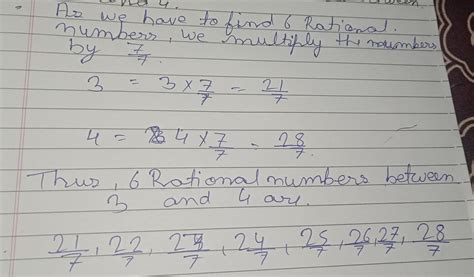 and 4.
As we have to find 6 Rational
numbers, we multiply the numbers
by 7/7
3 = 3 × 7/7 = 21/7
4 = 4 × 7/7 = 28/7.
Thus, 6 Rational numbers between
3 and 4 are.
21/7, 22/7, 23/7, 24/7, 25/7, 26/7, 27/7, 28/7